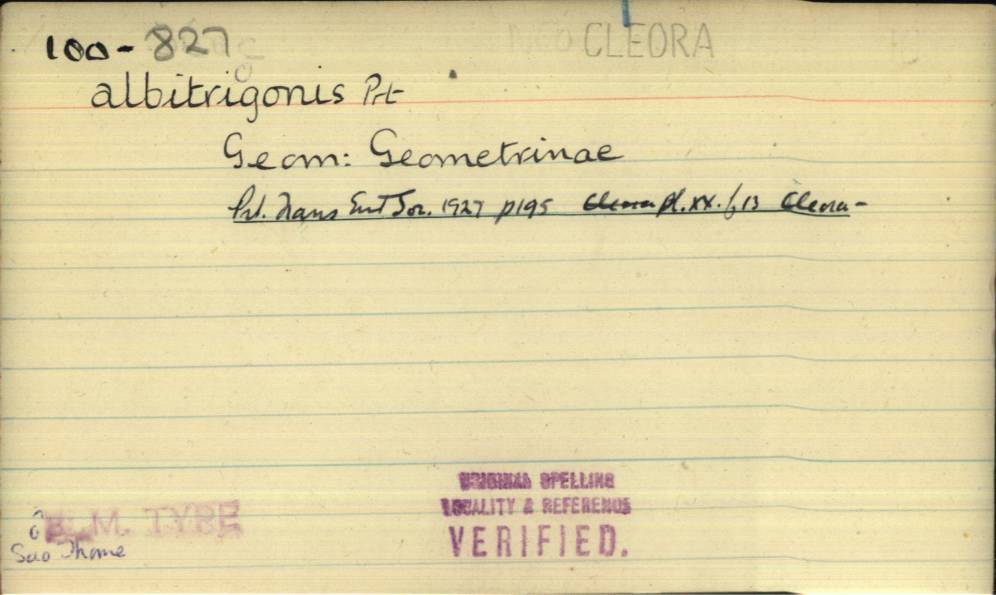 100-827 CLEORA
albitrigonis Prt
Geom: Geometrinae
Prt. Trans Ent Soc. 1927 p195 Cleora pl. XX. f 13 Cleora-
ORIGINAL SPELLING
LOCALITY & REFERENCE
VERIFIED.
B.M. TYPE
Sao Thome